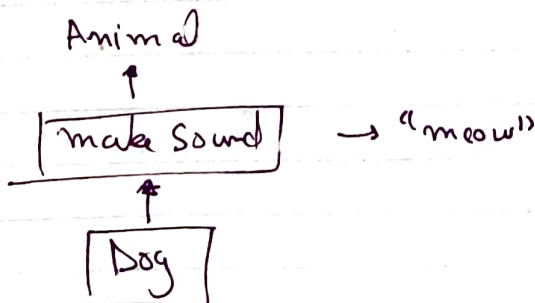 Animal
make Sound → "meow"
Dog